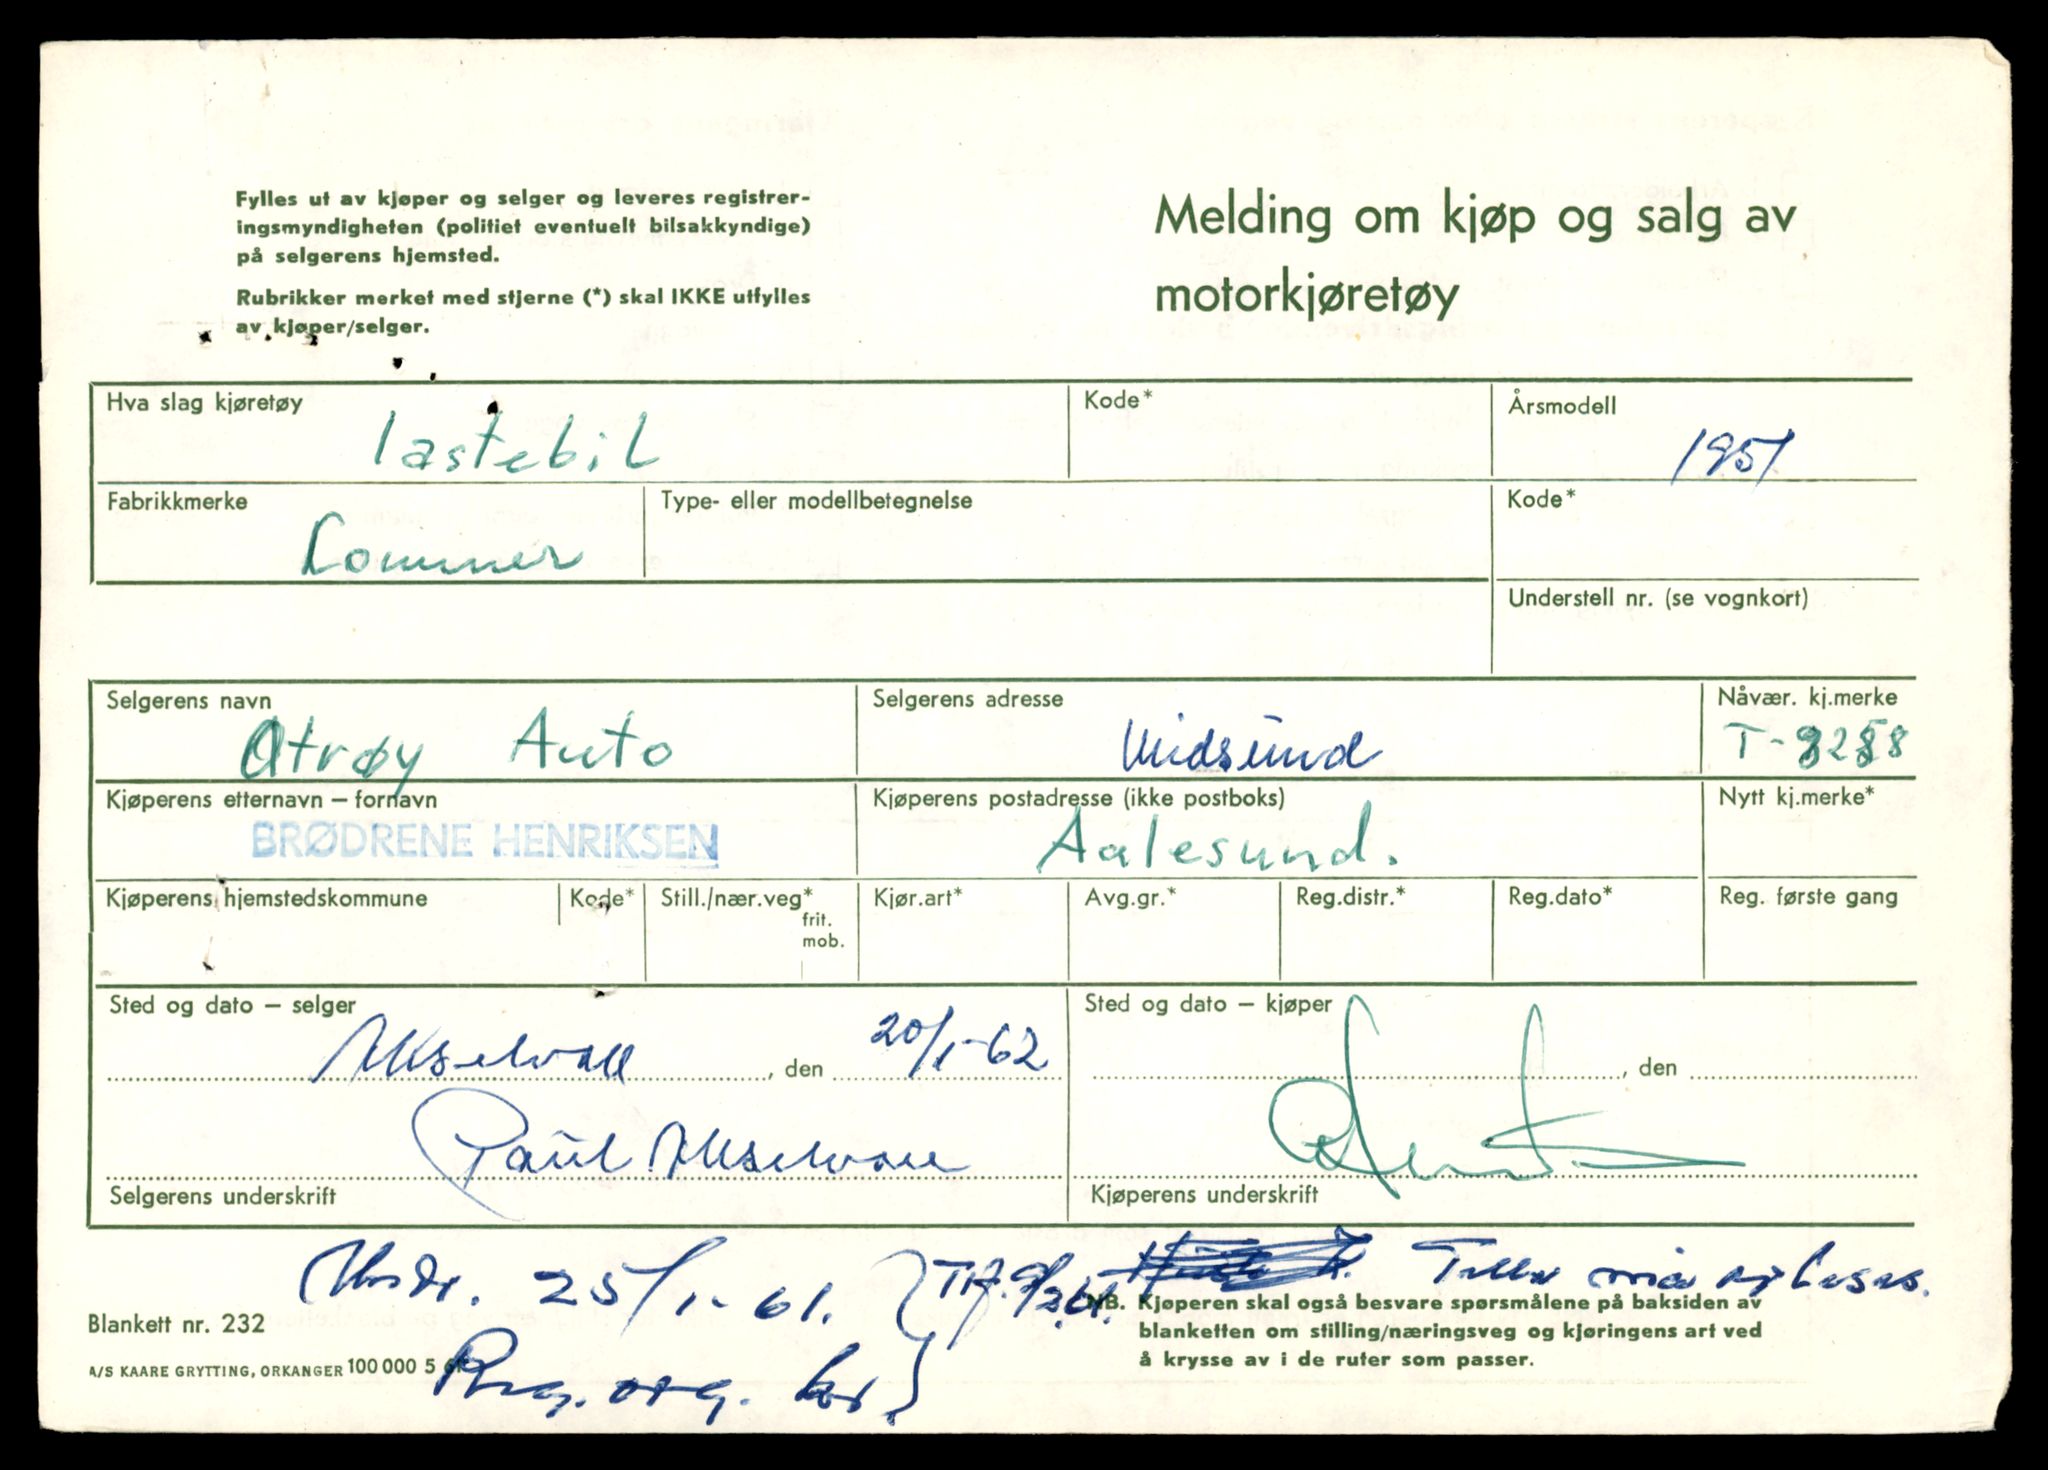 Fylles ut av kjøper og selger og leveres registrer-
ingsmyndigheten (politiet eventuelt bilsakkyndige)
på selgerens hjemsted.
Rubrikker merket med stjerne (*) skal IKKE utfylles
av kjøper/selger.
Melding om kjøp og salg av
motorkjøretøy
Hva slag kjøretøy
lastebil
Kode*
Årsmodell
1951
Fabrikkmerke
Commer
Type- eller modellbetegnelse
Kode*
Understell nr. (se vognkort)
Selgerens navn
Otrøy Auto
Selgerens adresse
Midsund
Nåvær. kj.merke
Kjøperens etternavn – fornavn
BRØDRENE HENRIKSEN
Kjøperens postadresse (ikke postboks)
Aalesund.
Nytt kj.merke*
Kjøperens hjemstedskommune
Kode*
Still./nær.veg*
frit.
mob.
Kjør.art*
Avg.gr.*
Reg.distr.*
Reg.dato*
Reg. første gang
Sted og dato – selger
, den
20/1-62
Sted og dato – kjøper
, den
Paul
Selgerens underskrift
Kjøperens underskrift
25/1-61.
Blankett nr. 232
NB. Kjøperen skal også besvare spørsmålene på baksiden av
blanketten om stilling/næringsveg og kjøringens art ved
å krysse av i de ruter som passer.
A/S KAARE GRYTTING, ORKANGER 100 000 5